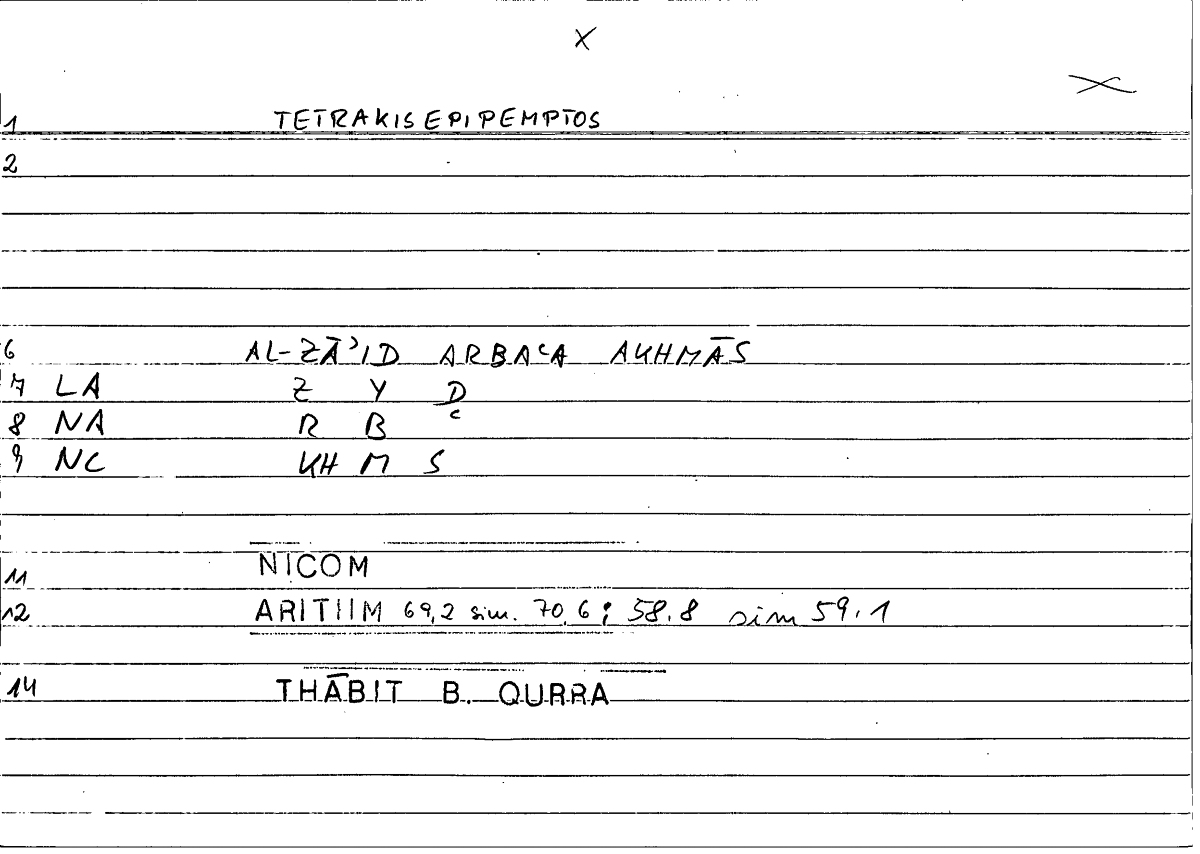 X
1 TETRAKISEPIPEMPTOS
2
6 AL-ZĀʾID ARBAʿA AKHMĀS
7 LA Z Y D
8 NA R B ʿ
9 NC KH M S
11 NICOM
12 ARITIIM 69,2 sim. 70,6; 58.8 sim 59.1
14 THĀBIT B. QURRA